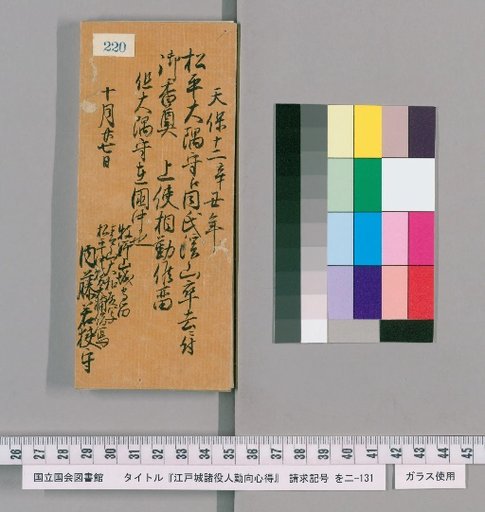 220
天保十二辛丑年
松平大隅守江同氏溪山卒去ニ付
御香奠 上使相勤候留
但大隅守在国中也
十月廿七日
牧野山城守
内藤若狭守
26 27 28 29 30 31 32 33 34 35 36 37 38 39 40 41 42 43 44 45
国立国会図書館 タイトル『江戸城諸役人勤向心得』 請求記号 を二-131
ガラス使用